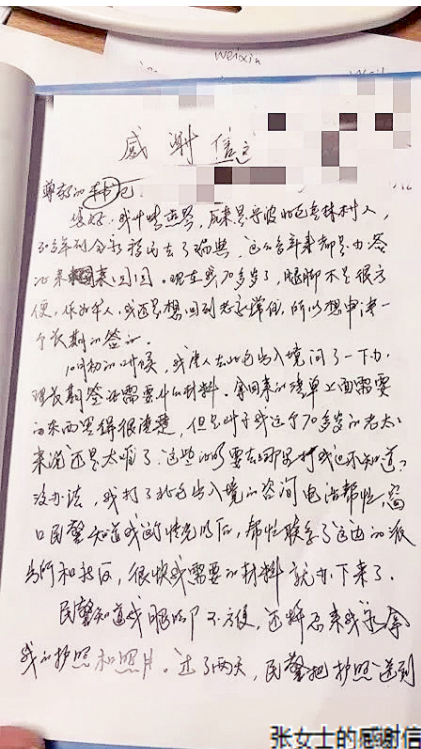 weixin
感谢信
尊敬的李书记
您好，我叫张  ，原来是宁波北仑  林村人，
30多年前全家移民去了瑞典，这么多年来都是办签
证来  来回回。现在我70多岁了，腿脚不是很方
便，作为老人，我还是想回到老家常住，所以想申请一
个长期的签证。
10月初的时候，我  人去北仑出入境问了一下办
理长期签证需要什么材料。拿回来的清单上面需要
的东西写得很清楚，但是对于我这个70多岁的老太太
来说还是太难了，这些  要在哪里打我也不知道？
没办法，我打了北仑出入境的咨询电话帮忙，窗
口民警知道我的情况以后，帮忙联系了这边的派
出所和社区，很快我需要的材料就办下来了。
民警知道我腿脚不方便，还特意来我家拿
我的护照和照片。过了两天，民警把护照送到
张女士的感谢信